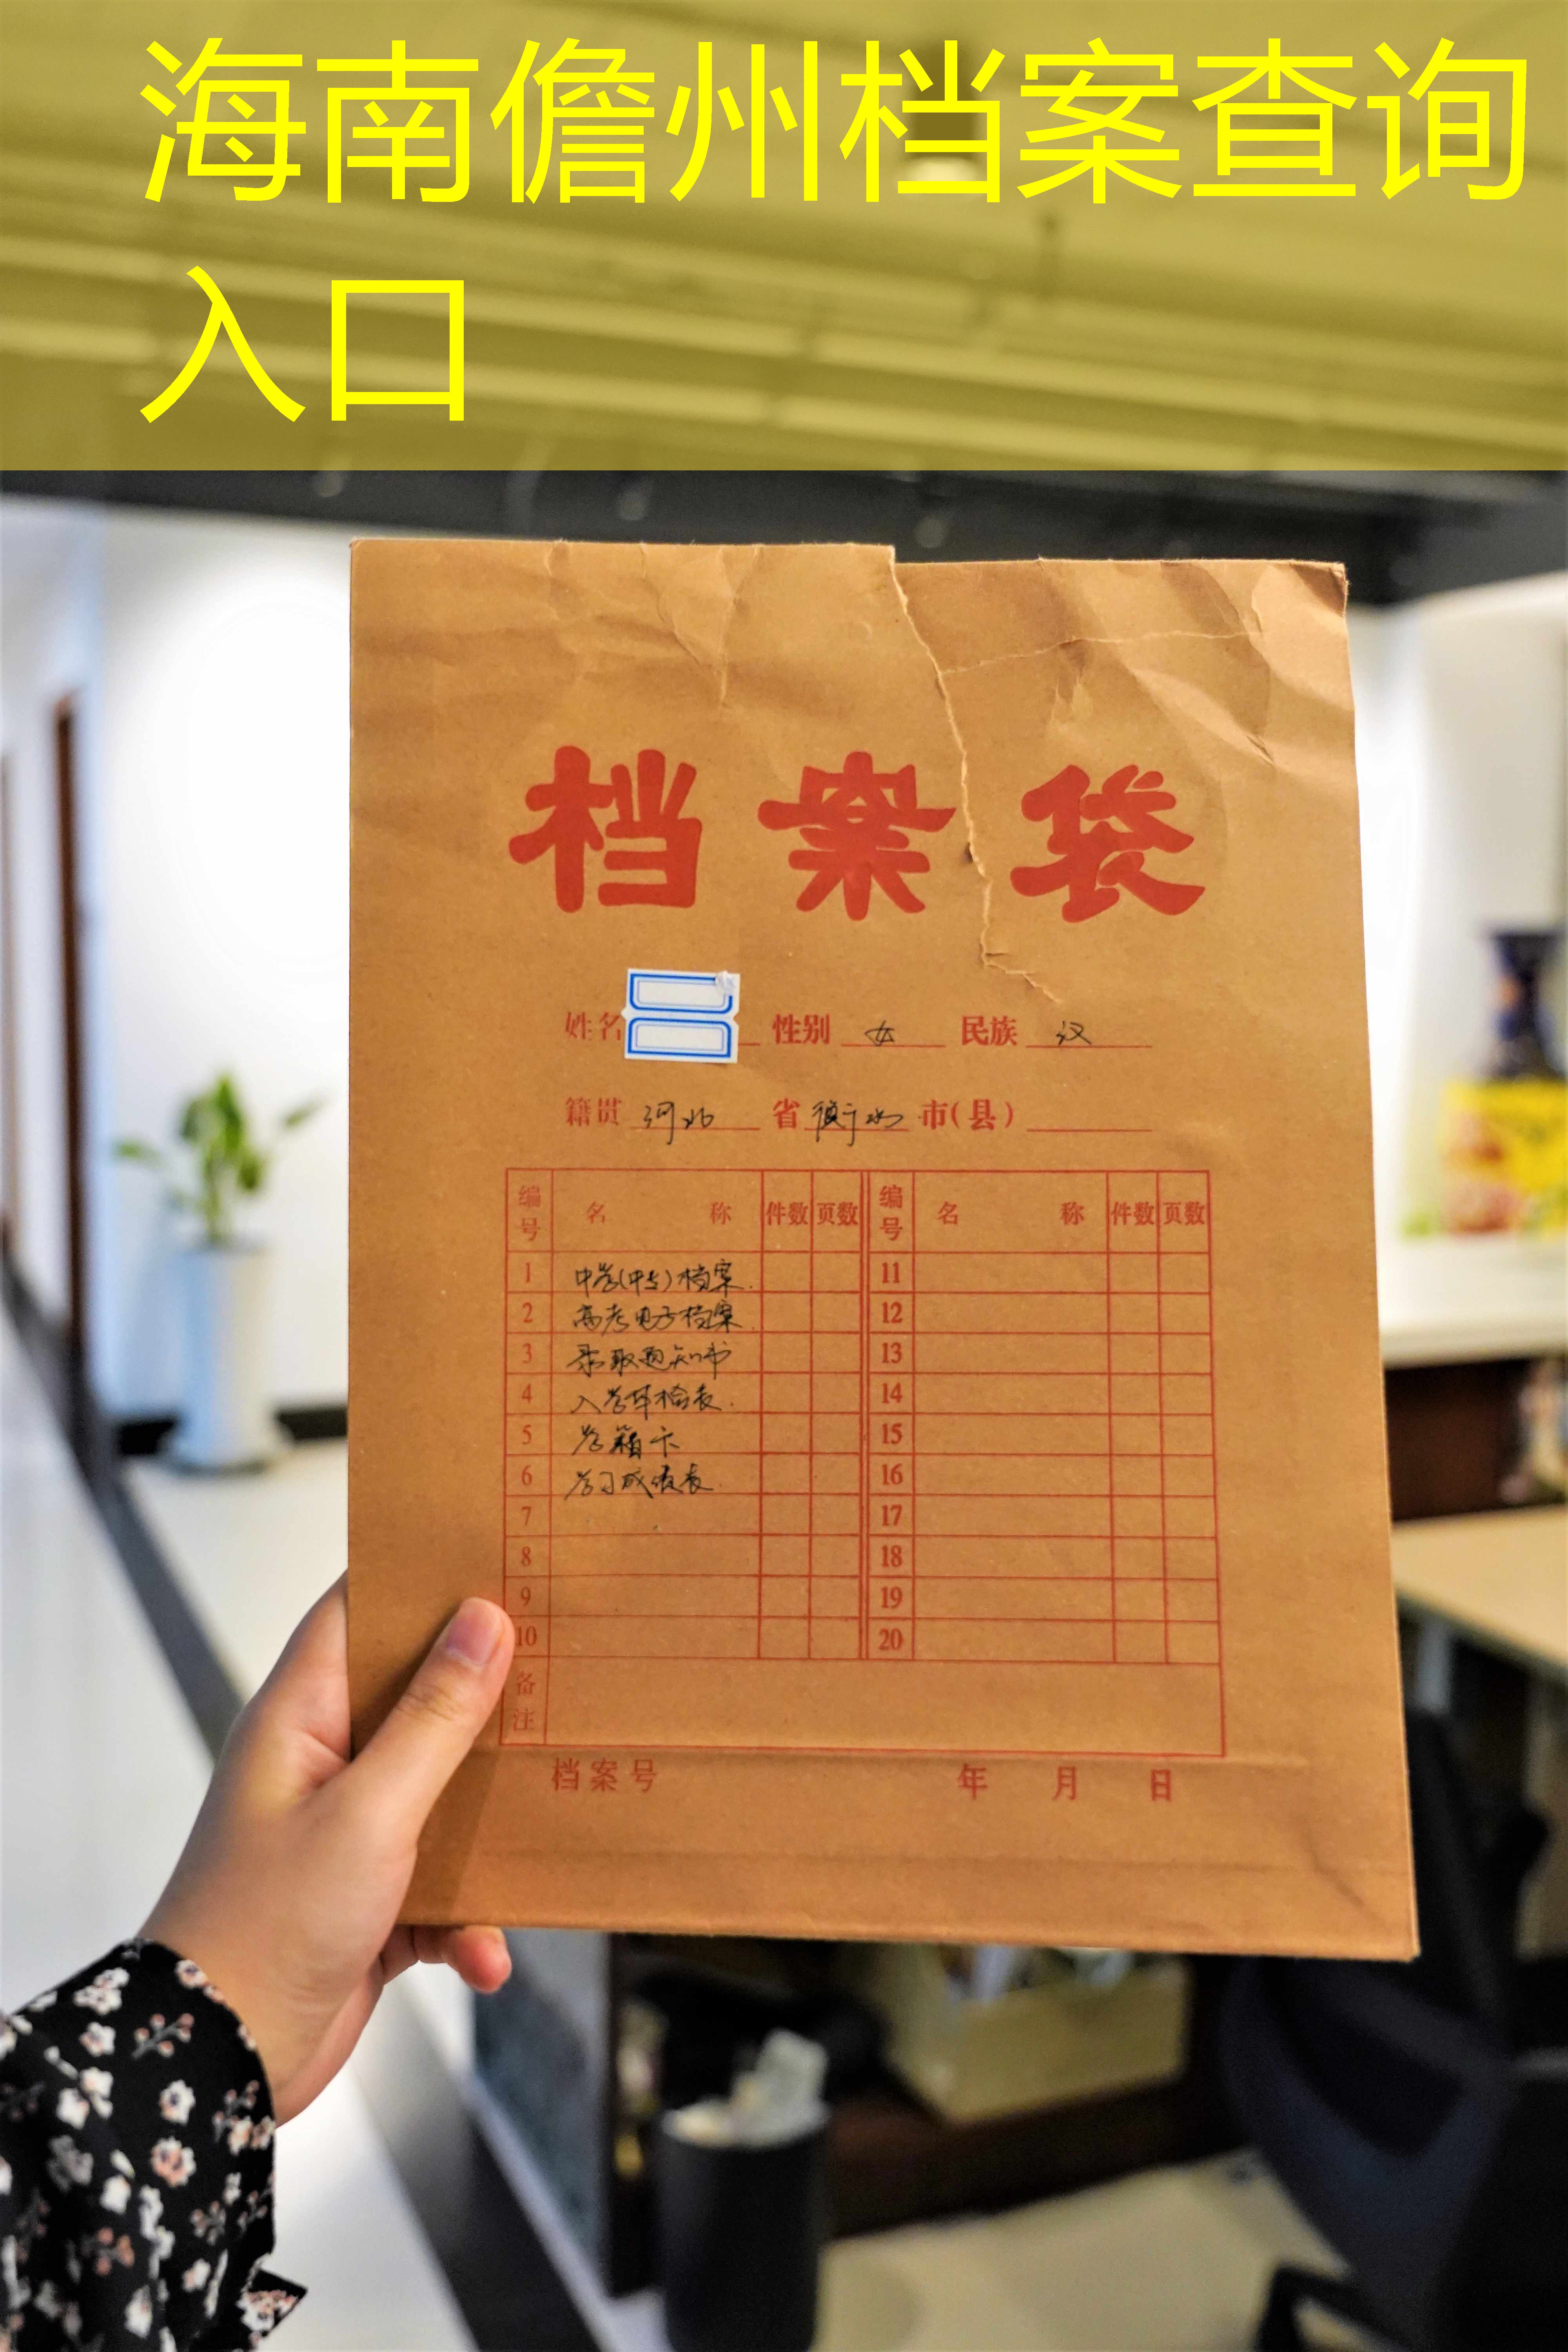 海南儋州档案查询
入口
档案袋
姓名 性别 女 民族 汉
籍贯 河北 省 衡水 市(县)
编号 名称 件数 页数 编号 名称 件数 页数
1 中学(中专)档案. 11
2 高考电子档案. 12
3 录取通知书 13
4 入学体检表. 14
5 学籍卡 15
6 学习成绩表. 16
7 17
8 18
9 19
10 20
备注
档案号 年 月 日